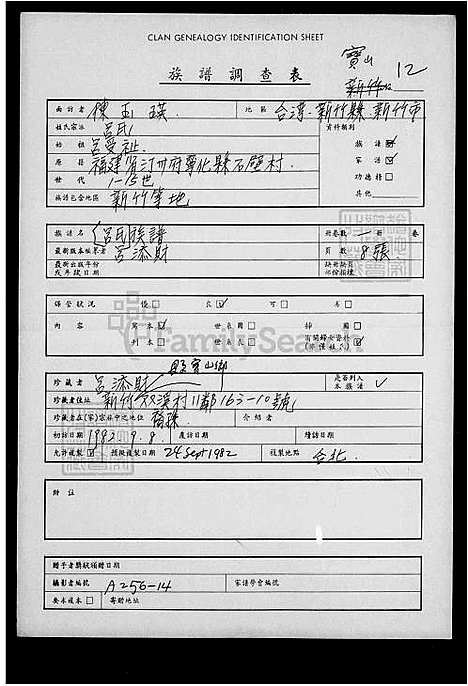 CLAN GENEALOGY IDENTIFICATION SHEET
族譜調查表
寶山
新竹
12
面訪者 陳玉瑛 地區 台灣.新竹縣.新竹市
姓氏宗派 呂氏 資料類別
始祖 呂愛祉. 族譜 ☑
原籍 福建省汀州府寧化縣石壁村. 家譜 ☑
世代 1-15世 功德榜 □
族譜包含地區 新竹等地 其他
族譜名 呂氏族譜 冊卷數 一 冊 卷
最新版本編纂者 呂添財 頁數 8張
最新出版年份或年敍日期 缺冊缺頁
保管狀況 優 □ 良 ☑ 可 □ 劣 □
內容 寫本 ☑ 世系圖 □ 揷圖 □
刊本 □ 世系表 □ 有關婦女資料
FamilySearch
縣寶山鄉
珍藏者 呂添財 是否列入本族譜 ✓
珍藏者住址 新竹 双溪村11鄰163-10號
珍藏者在(家)宗族中之地位 裔孫 介紹者
初訪日期 1982.9.8. 複訪日期 續訪日期
允許複製 ☑ 預擬複製日期 24 Sept 1982 複製地點 台北
附註
贈予者獎狀頒贈日期
攝影者編號 A256-14 家譜學會編號
要本複本 □ 寄贈地址